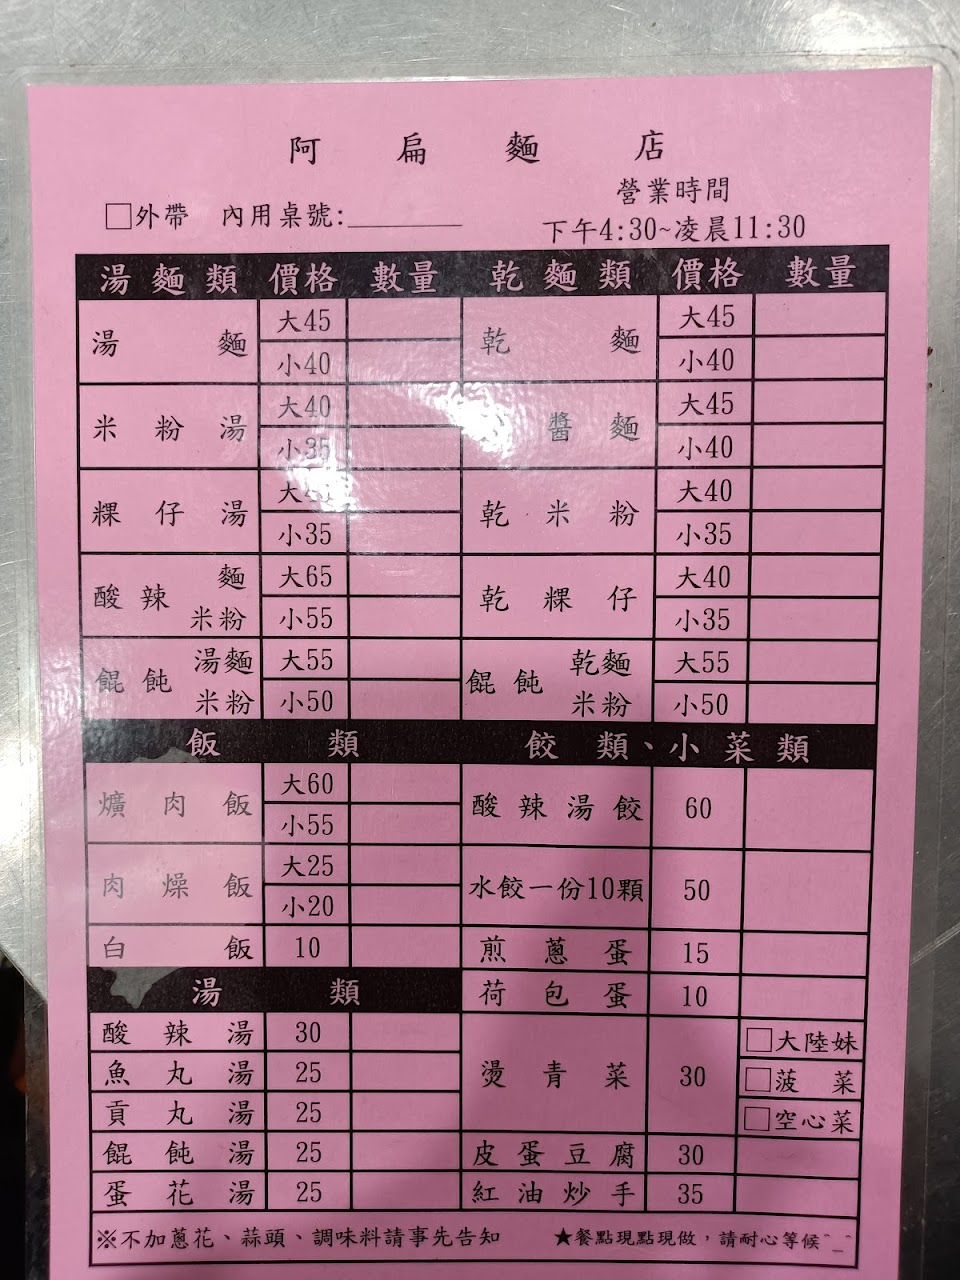 阿扁麵店
營業時間
□外帶 內用桌號:________ 下午4:30~凌晨11:30
湯麵類 價格 數量 乾麵類 價格 數量
湯麵 大45 乾麵 大45
小40 小40
米粉湯 大40 醬麵 大45
小35 小40
粿仔湯 大 乾米粉 大40
小35 小35
酸辣 麵 大65 乾粿仔 大40
米粉 小55 小35
餛飩 湯麵 大55 餛飩 乾麵 大55
米粉 小50 米粉 小50
飯類 餃類、小菜類
爌肉飯 大60 酸辣湯餃 60
小55
肉燥飯 大25 水餃一份10顆 50
小20
白飯 10 煎蔥蛋 15
湯類 荷包蛋 10
酸辣湯 30 燙青菜 30 □大陸妹
魚丸湯 25 □菠菜
貢丸湯 25 □空心菜
餛飩湯 25 皮蛋豆腐 30
蛋花湯 25 紅油炒手 35
※不加蔥花、蒜頭、調味料請事先告知 ★餐點現點現做，請耐心等候^_^